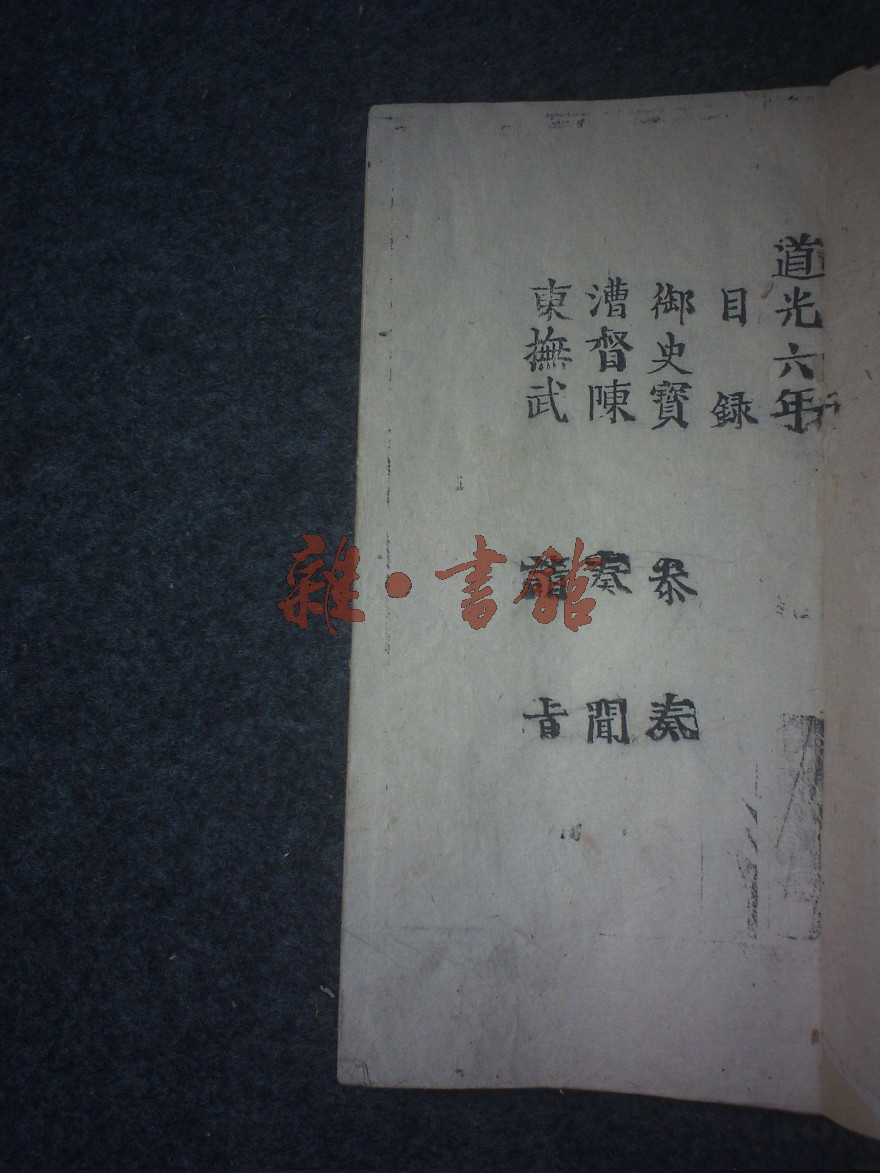 道光六年
目録
御史寳 叅奏
漕督陳 奏聞
東撫武 旨
雜·書館